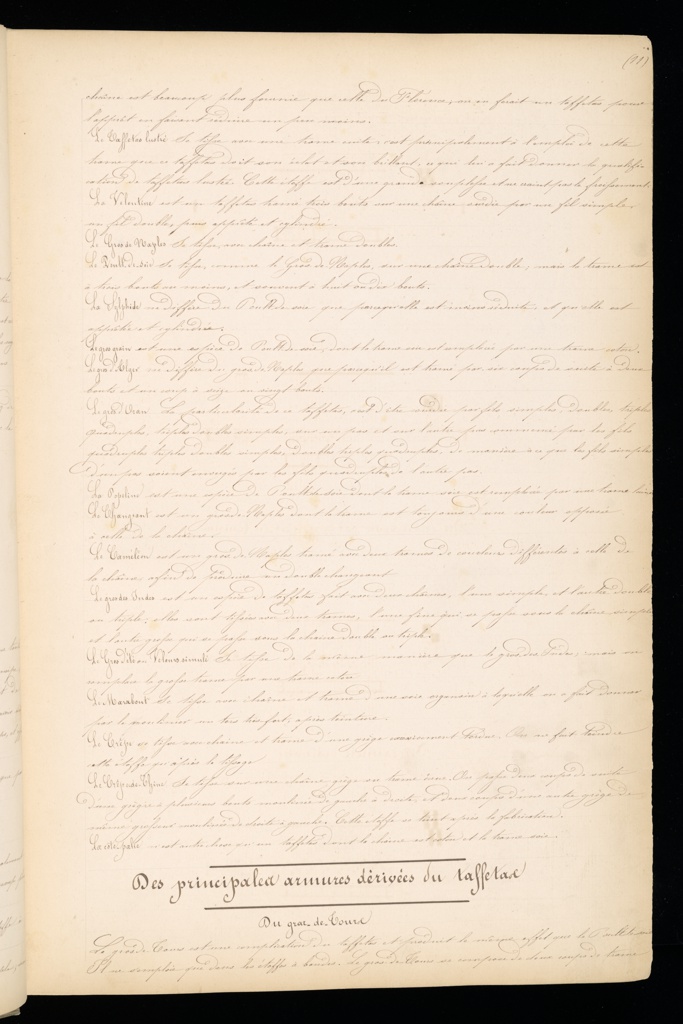 chaîne est beaucoup plus fournie que celle du Florence, ou en fait un taffetas pour
l'apprêt en faisant même un peu moins.
Le Taffetas lustré Se tisse avec une trame cuite, c'est principalement à l'emploi de cette
trame que ce taffetas doit son éclat et son brillant, ce qui lui a fait donner la qualifi-
cation de taffetas lustré. Cette étoffe est d'une grande souplesse et ne craint pas le froissement
La Valentine est un taffetas tramé très bouts sur une chaîne ourdie par un fil simple
un fil double, puis apprêté et cylindré.
Le Gros de Naples Se tisse, avec chaîne et trame doubles.
Le Poult de soie Se tisse, comme le Gros de Naples, sur une chaîne double, mais la trame est
à trois bouts au moins, et souvent à huit ou dix bouts.
La ne diffère du Poult de soie que parce qu'elle est moins réduite et qu'elle est
apprêtée et cylindrée.
est une espèce de Poult de soie, dont la trame soie est remplacée par une trame coton.
Le gros d'Alger ne diffère du gros de Naples que parce qu'il est tramé par un coup de navette à deux
bouts et un coup à seize ou vingt bouts.
Le gros d'Oran La particularité de ce taffetas, c'est d'être ourdi par fils simples, doubles, triples
quadruples, triples doubles simples, sur un pas et sur l'autre pas commencé par les fils
quadruples triples doubles simples, doubles triples quadruples, de manière à ce que les fils simples
d'un pas soient avoisinés par les fils quadruples de l'autre pas.
La Popeline est une espèce de Poult de soie dont la trame soie est remplacée par une trame laine
Le Changeant est un gros de Naples dont la trame est toujours d'une couleur opposée
à celle de la chaîne.
Le Caméléon est un gros de Naples tramé avec deux trames de couleurs différentes à celle de
la chaîne afin de produire un double changeant
Le gros des Indes est une espèce de taffetas fait avec deux chaînes, l'une simple, et l'autre double
ou triple; elles sont tissées avec deux trames, l'une fine qui se passe sous la chaîne simple
et l'autre grosse qui se passe sous la chaîne double ou triple.
Le ou Velours simulé Se tisse de la même manière que le gros des Indes, mais on
remplace la grosse trame par une trame coton
Le Marabout se tisse avec chaîne et trame d'une soie organsin à laquelle on a fait donner
par le moulinier un tors très fort, après teinture.
Le Crêpe se tisse avec chaîne et trame d'une grège Tordue. On ne fait Teindre
cette étoffe qu'après le tissage
Le Crêpe de Chine Se tisse sur une chaîne grège ou trame crue. On passe deux coups de navette
d'une grège à plusieurs bouts moulinée de gauche à droite, et deux coups d'une autre grège de
même grosseur moulinée de droite à gauche. Cette étoffe se teint après la fabrication.
La n'est autre chose qu'un taffetas dont la chaîne est coton et la trame soie.
Des principales armures dérivées du taffetas
Du gros de Tours
Le gros de Tours est une complication du taffetas et produit le même effet que le Poult de soie
Il ne s'emploie que dans les étoffes à bandes. Le gros de Tours se compose de deux coups de trame